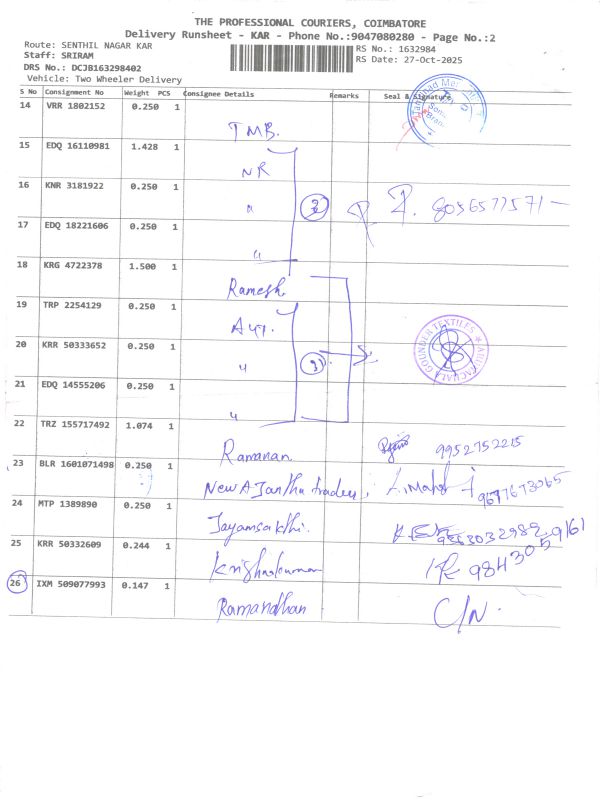 THE PROFESSIONAL COURIERS, COIMBATORE
Delivery Runsheet - KAR - Phone No.:9047080280 - Page No.:2
Route: SENTHIL NAGAR KAR
Staff: SRIRAM
DRS No.: DCJB163298402
Vehicle: Two Wheeler Delivery
RS No.: 1632984
RS Date: 27-Oct-2025
S No Consignment No Weight PCS Consignee Details Remarks Seal & Signature
14 VRR 1802152 0.250 1 TMB.
15 EDQ 16110981 1.428 1 NR
16 KNR 3181922 0.250 1 "
3 8056577571
17 EDQ 18221606 0.250 1 "
18 KRG 4722378 1.500 1 Ramesh
19 TRP 2254129 0.250 1
20 KRR 50333652 0.250 1 "
GOUNDER TEXTILES
21 EDQ 14555206 0.250 1 "
22 TRZ 155717492 1.074 1 Ramanan 9952752215
23 BLR 1601071498 0.250 1 New Ajantha traders 9677673065
24 MTP 1389890 0.250 1 Jayamsakthi.
25 KRR 50332609 0.244 1 Krishnakumar 9843059161
26 IXM 509077993 0.147 1 Ramandhan C/N.